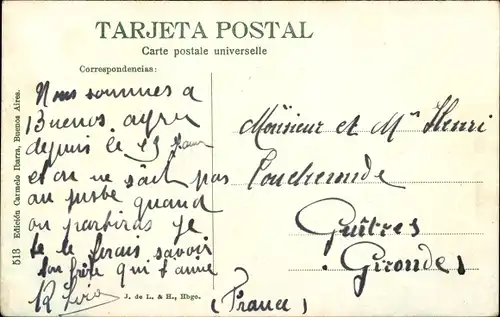 TARJETA POSTAL
Carte postale universelle
Correspondencias:
Nous sommes a
Buenos. ayres
depuis le 23
et on ne sait pas
au juste quand
on partiras je
te le ferais savoir
ton frère qui t'aime
Monsieur et Mme Henri
Guîtres
Gironde
(France)
513 Edición Carmelo Ibarra, Buenos Aires.
J. de L. & H., Hbgo.